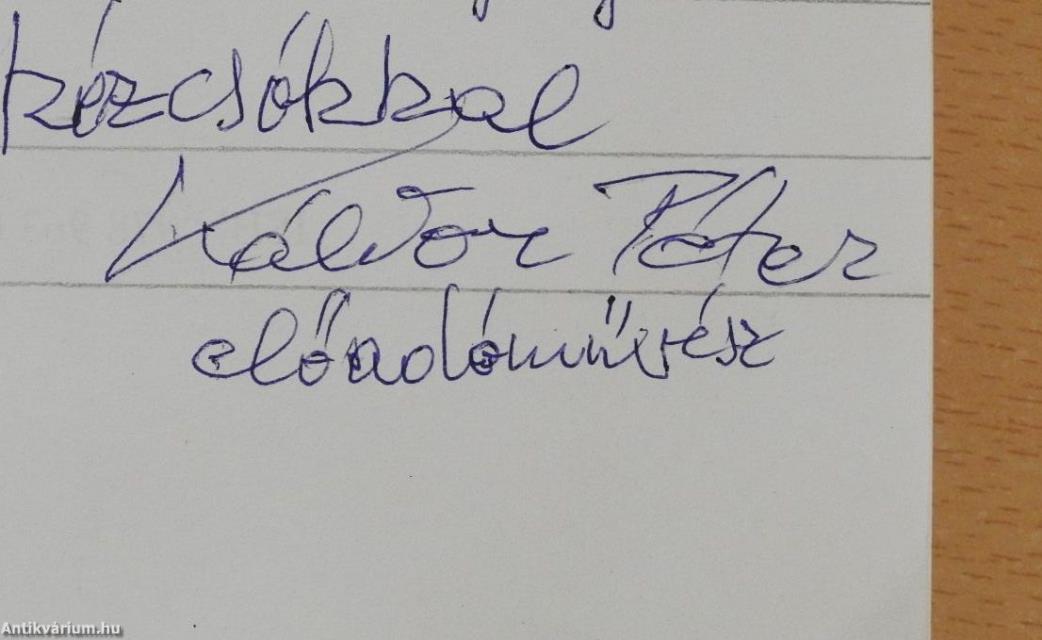 kézcsókkal
Kálvor Péter
előadóművész
Antikvárium.hu